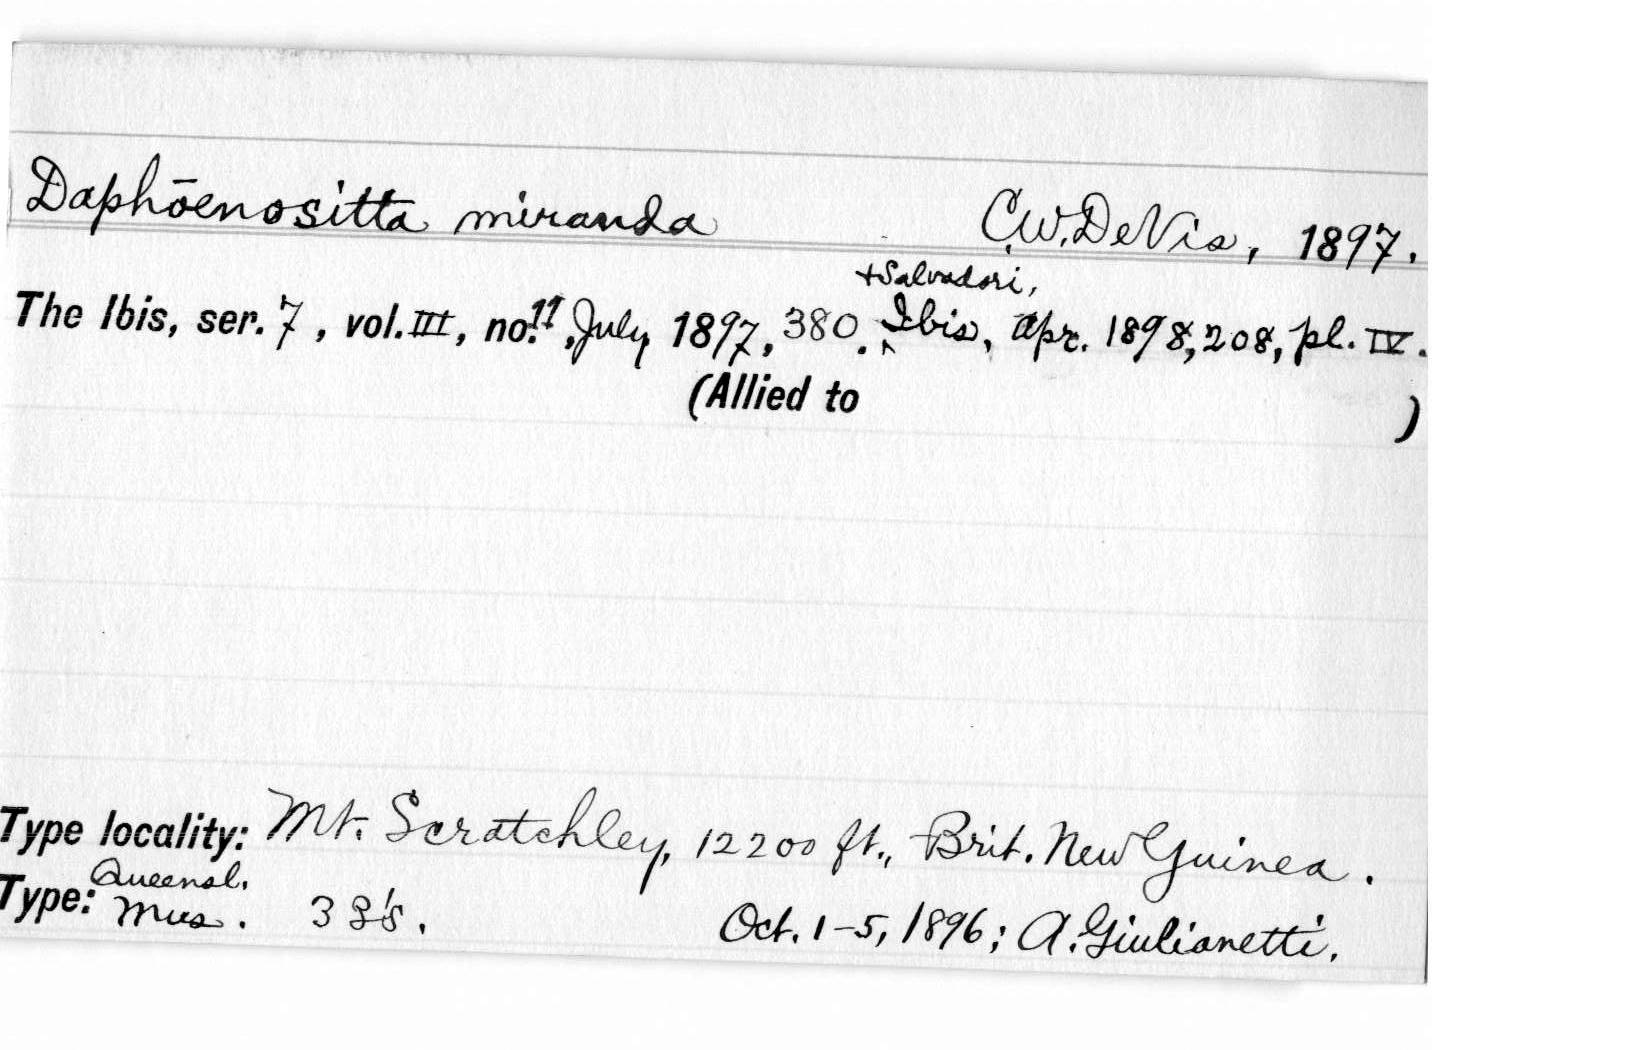 Daphōenositta miranda C.W.DeVis, 1897.
+Salvadori,
The Ibis, ser. 7, vol. III, no. 11, July 1897, 380. ^ Ibis, Apr. 1898, 208, pl. IV.
(Allied to )
Type locality: Mt. Scratchley, 12200 ft., Brit. New Guinea.
Queensl.
Type: Mus. 3 Oct. 1-5, 1896; A. Giulianetti.